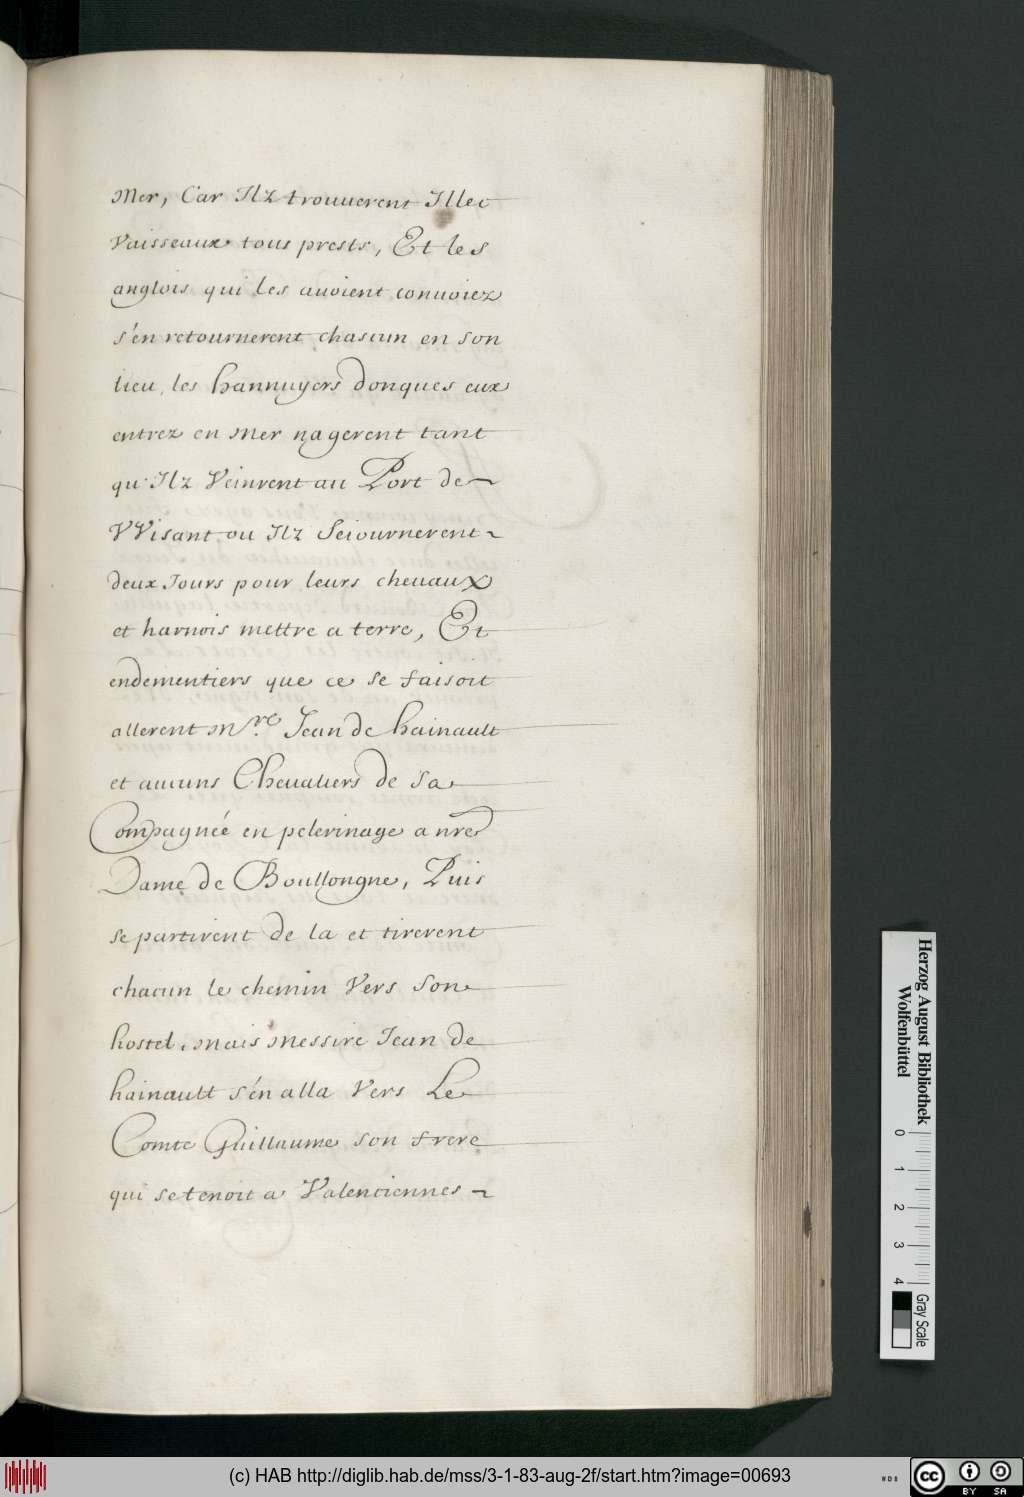 Mer, Car Ilz trouuerent Illec
Vaisseaux tous prests, Et les
anglois qui les auoient conuoiez
s'en retournerent chascun en son
lieu, les hannuyers donques eux
entrez en Mer nagerent tant
qu'Ilz Veinrent au Port de
VVisant ou Ilz Seiournerent
deux Jours pour leurs cheuaux
et harnois mettre a terre, Et
endementiers que ce se faisoit
allerent Mre. Jean de hainault
et aucuns Cheualiers de sa
Compagneé en pelerinage a nre
Dame de Boullongne, Puis
se partirent de la et tirerent
chacun le chemin Vers Son
hostel, Mais Messire Jean de
hainault s'en alla Vers Le
Comte Guillaume son frere
qui se tenoit a Valenciennes
Herzog August Bibliothek
Wolfenbüttel
0 1 2 3 4
Gray Scale
(c) HAB http://diglib.hab.de/mss/3-1-83-aug-2f/start.htm?image=00693
WDB
cc
BY SA